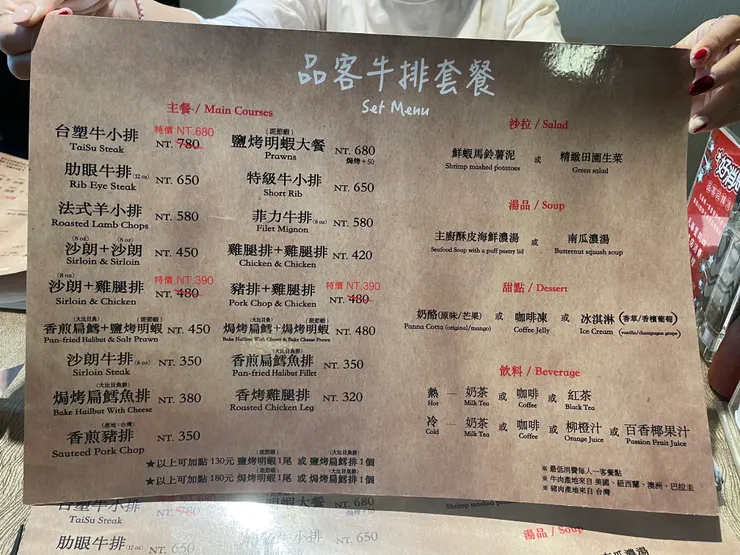 品客牛排套餐
Set Menu
主餐 / Main Courses
台塑牛小排 特價 NT.680
TaiSu Steak NT. 780
肋眼牛排(12 oz) NT. 650
Rib Eye Steak
法式羊小排 NT. 580
Roasted Lamb Chops
(8 oz) (8 oz)
沙朗+沙朗 NT. 450
Sirloin & Sirloin
(8 oz)
沙朗+雞腿排 特價 NT.390
Sirloin & Chicken NT. 480
(大比目魚) (斑節蝦)
香煎扁鱈+鹽烤明蝦 NT. 450
Pan-fried Halibut & Salt Prawn
沙朗牛排(8 oz) NT. 350
Sirloin Steak
(大比目魚排)
焗烤扁鱈魚排 NT. 380
Bake Hailbut With Cheese
(產地:台灣)
香煎豬排 NT. 350
Sauteed Pork Chop
(斑節蝦)
鹽烤明蝦大餐 NT. 680
Prawns 焗烤+50
特級牛小排 NT. 650
Short Rib
菲力牛排(8 oz) NT. 580
Filet Mignon
雞腿排+雞腿排 NT. 420
Chicken & Chicken
豬排+雞腿排 特價 NT.390
Pork Chop & Chicken NT. 480
(大比目魚) (斑節蝦)
焗烤扁鱈+焗烤明蝦 NT. 480
Bake Halibut With Cheese & Bake Cheese Prawn
(大比目魚排)
香煎扁鱈魚排 NT. 350
Pan-fried Halibut Fillet
香烤雞腿排 NT. 320
Roasted Chicken Leg
(斑節蝦) (大比目魚)
★以上可加點 130元 鹽烤明蝦1尾 或 鹽烤扁鱈排1個
(斑節蝦) (大比目魚)
★以上可加點 180元 焗烤明蝦1尾 或 焗烤扁鱈排1個
沙拉 / Salad
鮮蝦馬鈴薯泥 或 精緻田園生菜
Shrimp mashed potatoes Green salad
湯品 / Soup
主廚酥皮海鮮濃湯 或 南瓜濃湯
Seafood Soup with a puff pastry lid Butternut squash soup
甜點 / Dessert
奶酪(原味/芒果) 或 咖啡凍 或 冰淇淋(香草/香檳葡萄)
Panna Cotta (original/mango) Coffee Jelly Ice Cream (vanilla/champagne grape)
飲料 / Beverage
熱 — 奶茶 或 咖啡 或 紅茶
Hot Milk Tea Coffee Black Tea
冷 — 奶茶 或 咖啡 或 柳橙汁 或 百香椰果汁
Cold Milk Tea Coffee Orange Juice Passion Fruit Juice
※ 最低消費每人一客餐點
※ 牛肉產地來自 美國、紐西蘭、澳洲、巴拉圭
※ 豬肉產地來自 台灣
台塑牛小排 NT. 780
TaiSu Steak
肋眼牛排(12 oz) NT. 650
680
Prawns
NT. 650
Shrimp mashed potatoes
湯品 / Soup